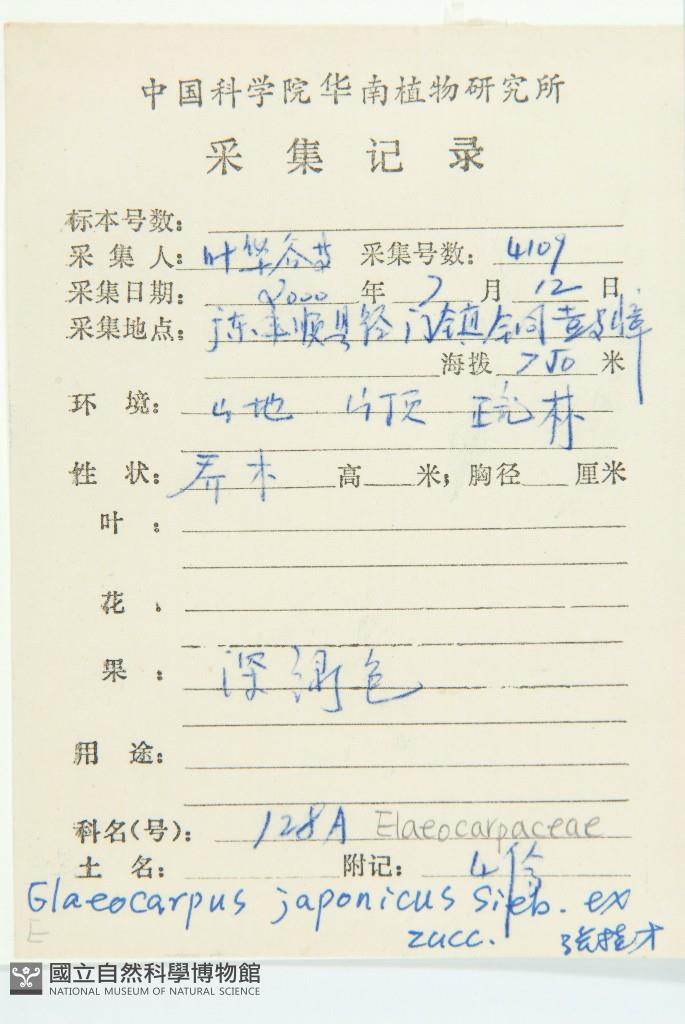 中国科学院华南植物研究所
采集记录
标本号数:
采集人: 叶华谷等 采集号数: 4109
采集日期: 2000 年 7 月 12 日
采集地点: 广东丰顺县 镇
海拨 750 米
环境: 山地 山顶 疏林
性状: 乔木 高 米; 胸径 厘米
叶:
花:
果: 深绿色
用途:
科名(号): 128A Elaeocarpaceae
土名: 附记: 4份
Elaeocarpus japonicus Sieb. ex
E zucc. 张桂才
國立自然科學博物館
NATIONAL MUSEUM OF NATURAL SCIENCE